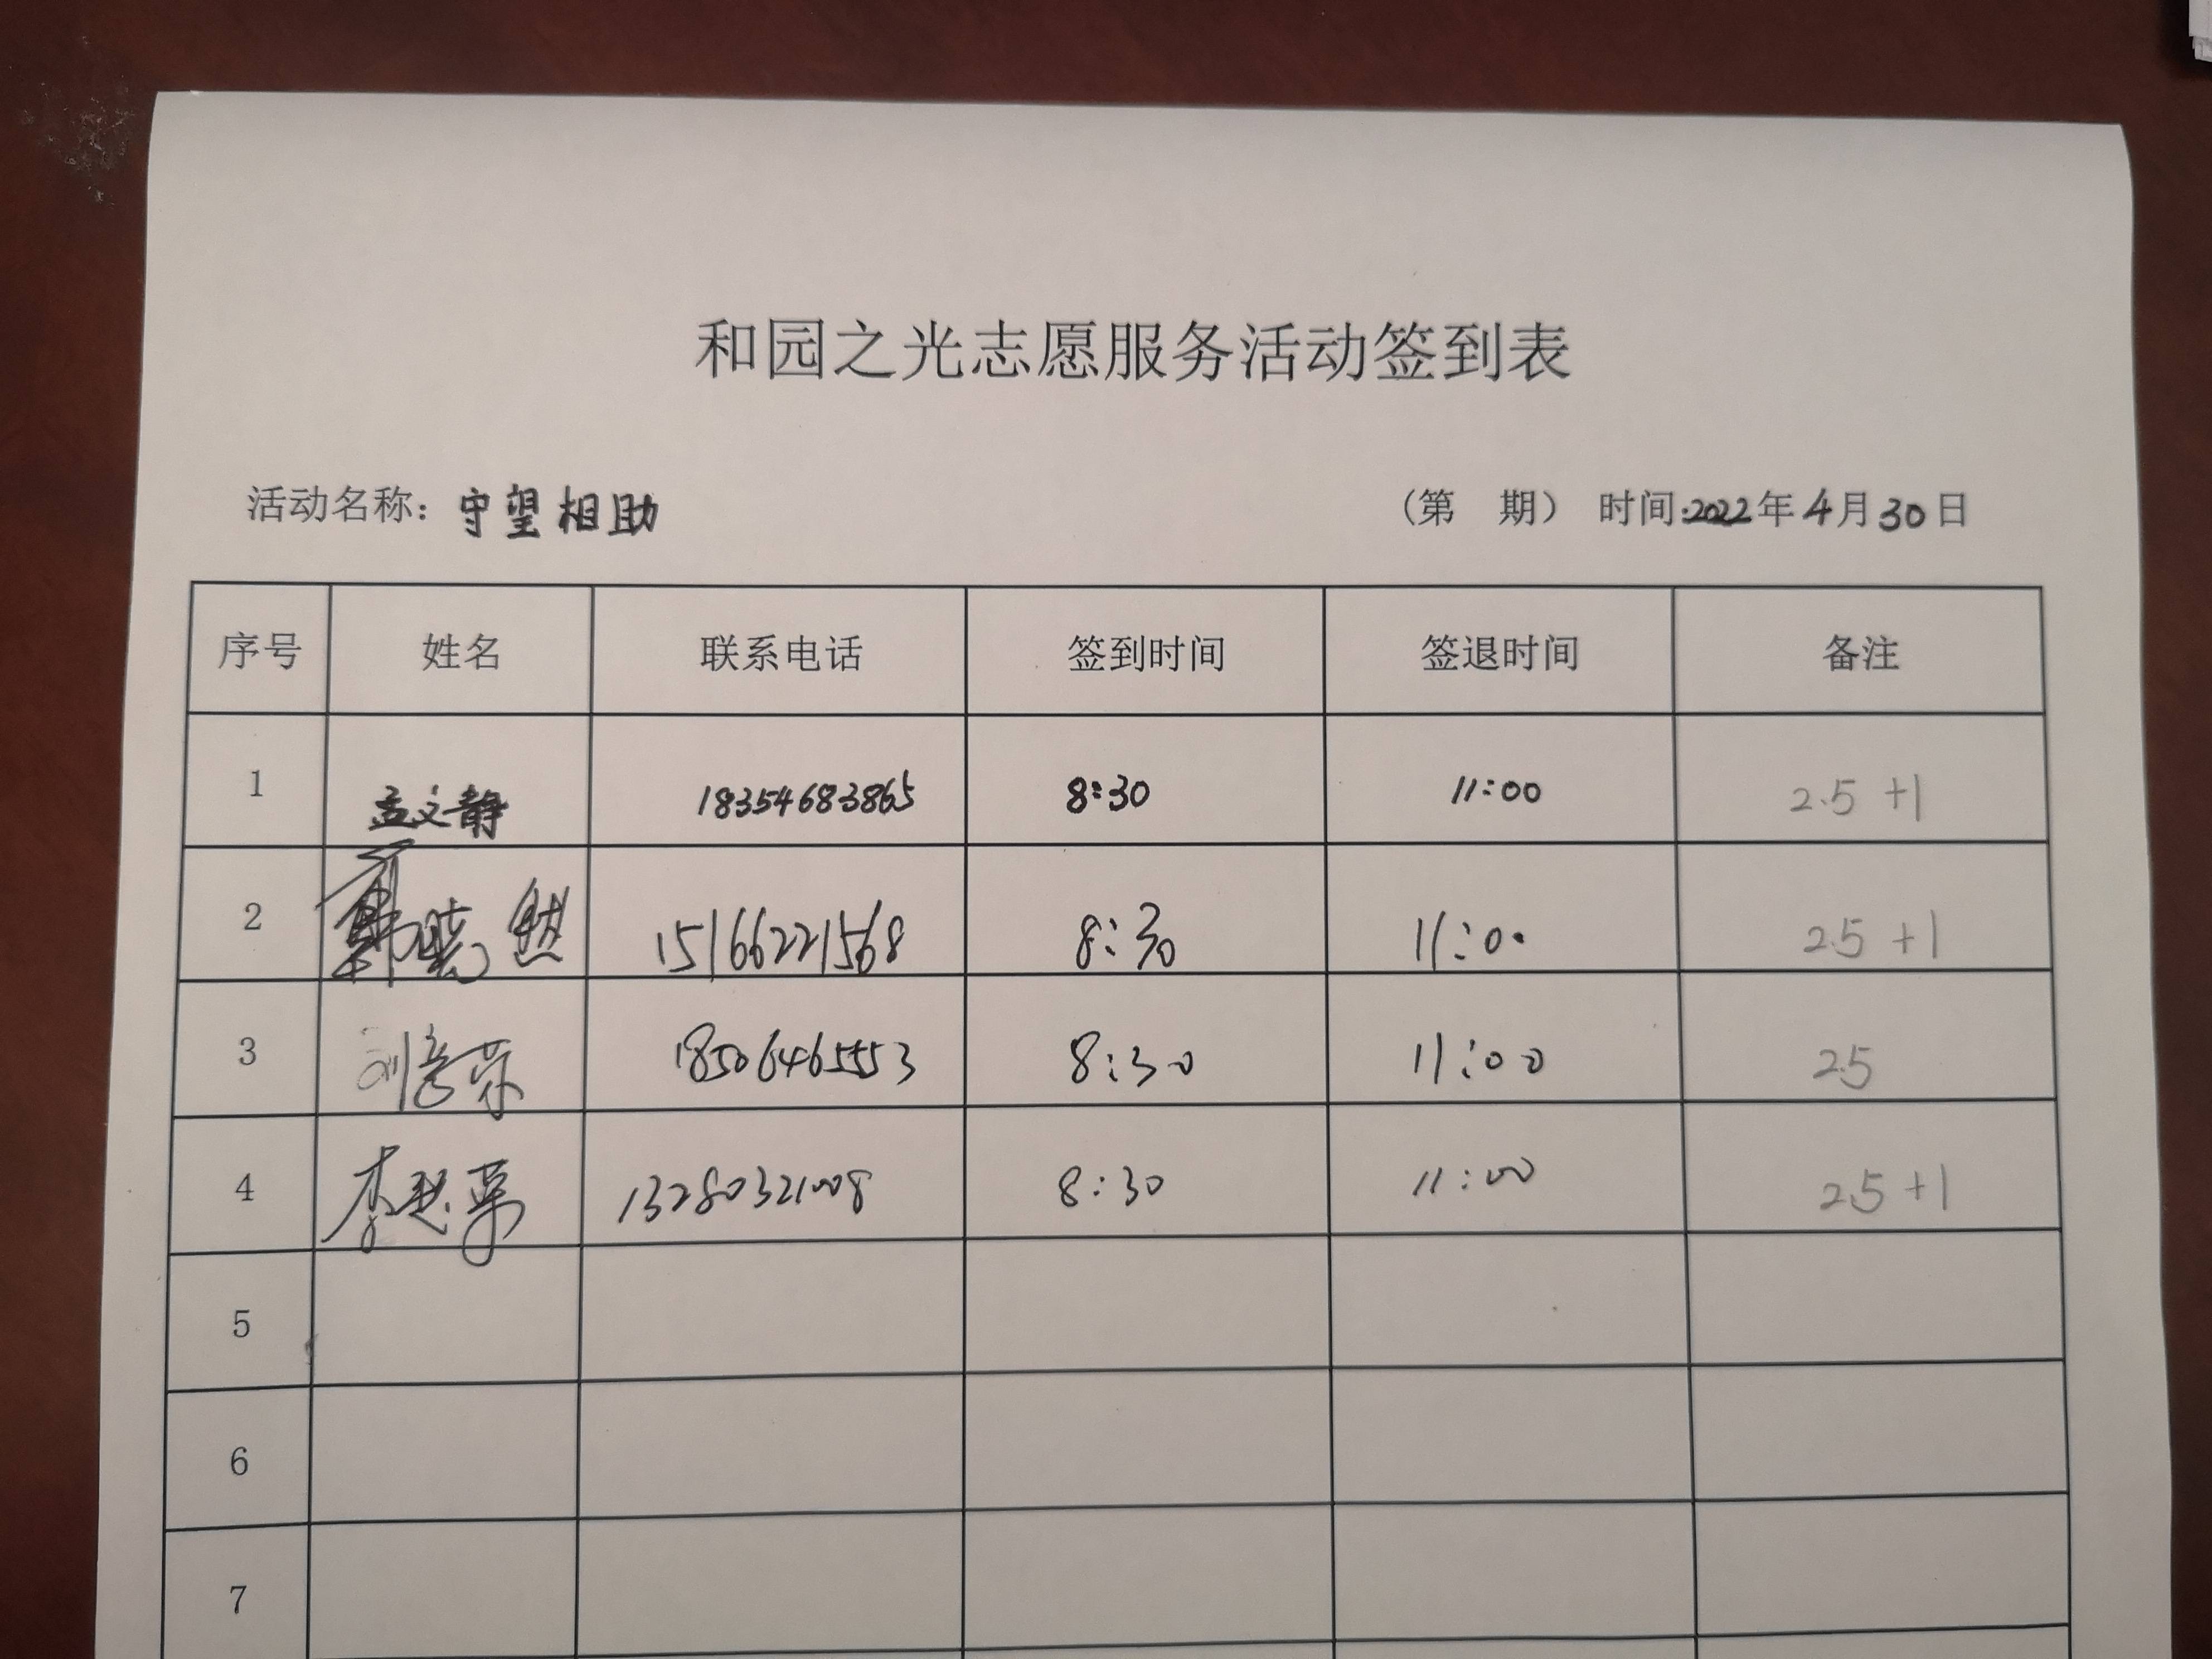 和园之光志愿服务活动签到表
活动名称：守望相助 （第 期） 时间：2022年4月30日
序号 姓名 联系电话 签到时间 签退时间 备注
1 孟文静 18354683865 8:30 11:00 2.5 +1
2 15166221568 8:30 11:00 2.5 +1
3 18506465553 8:30 11:00 2.5
4 13280321008 8:30 11:00 2.5 +1
5
6
7